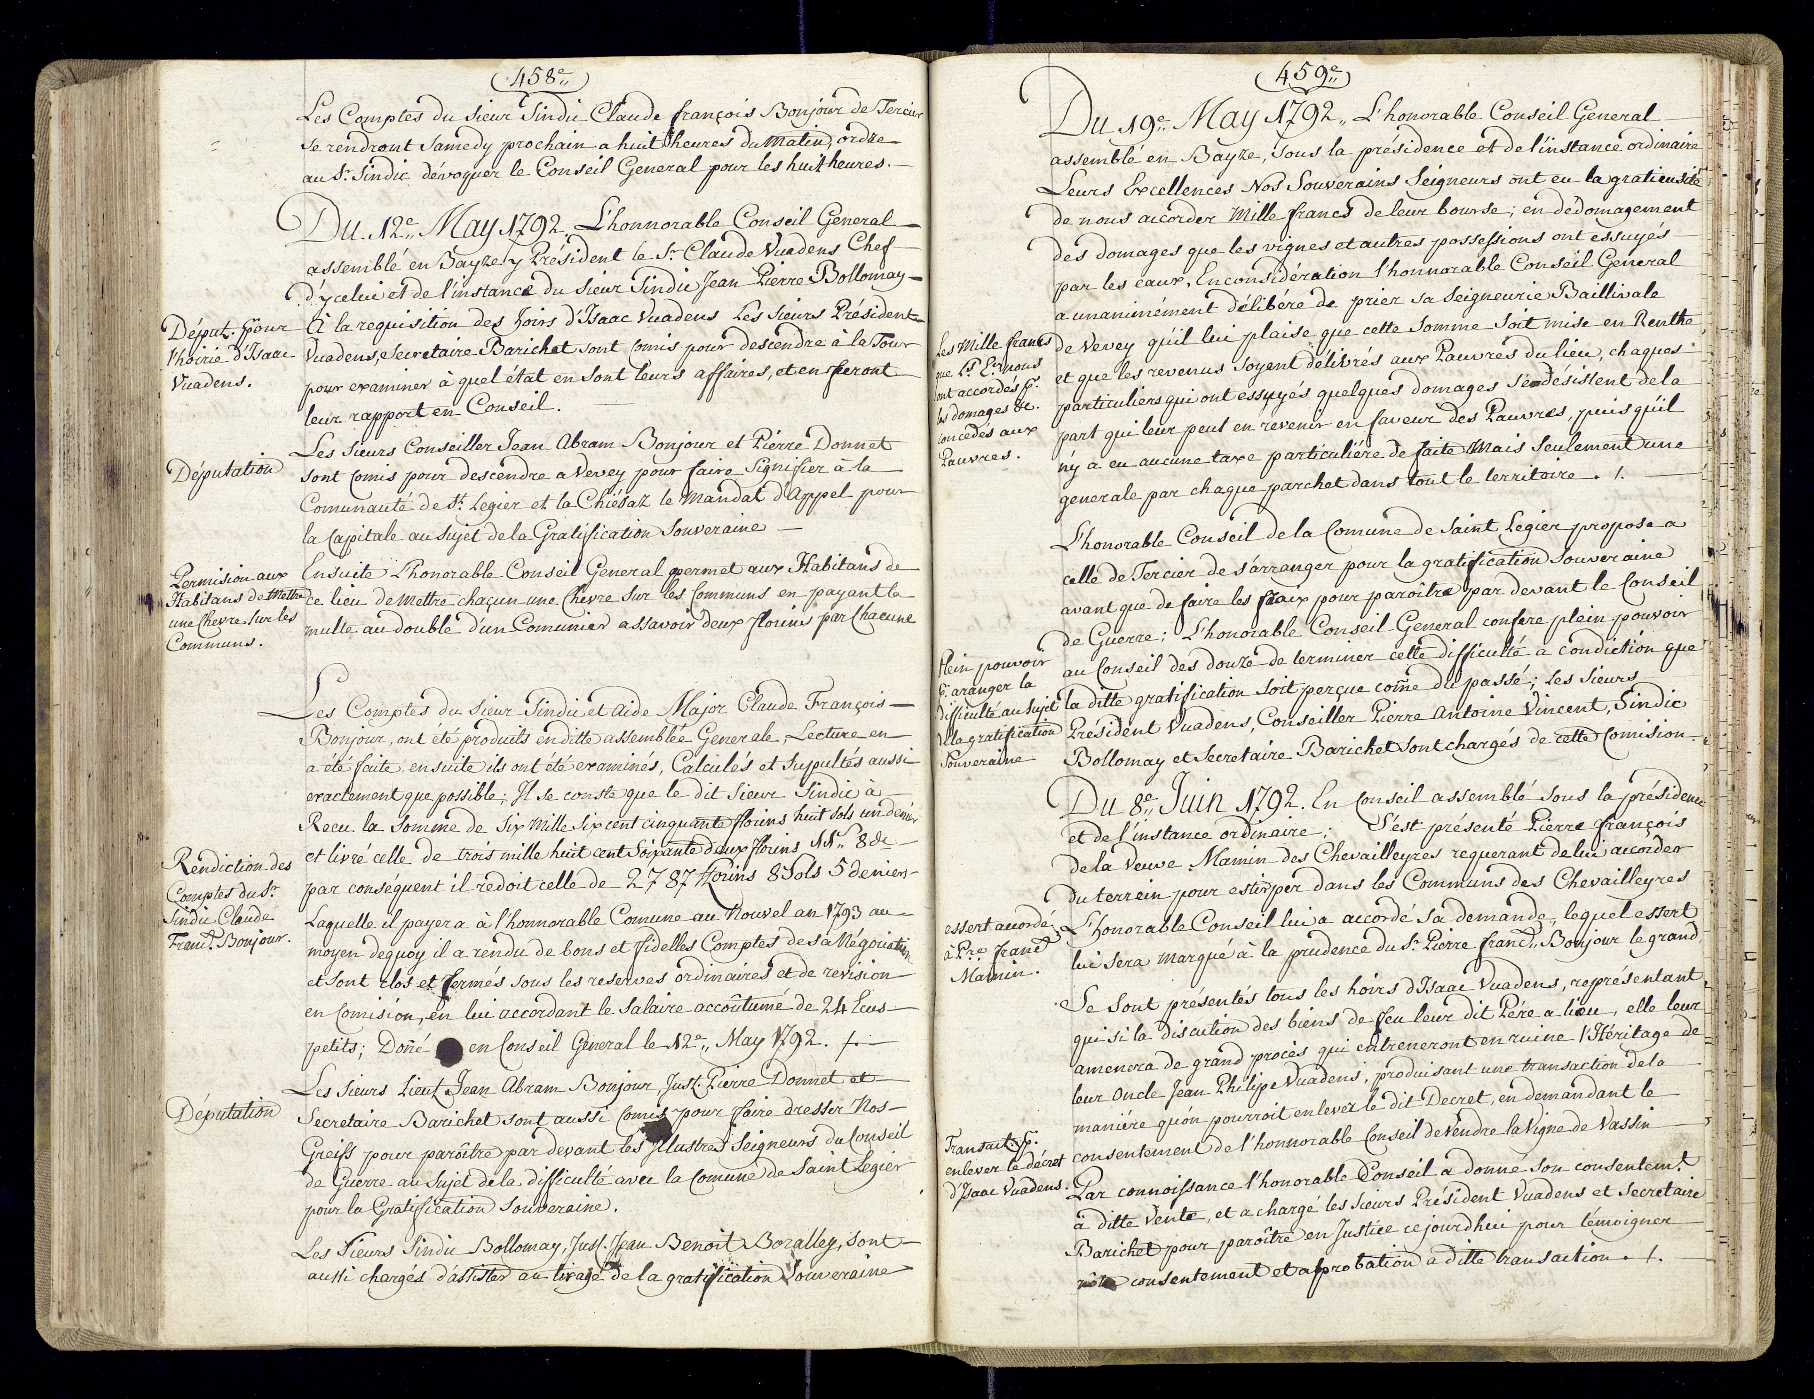 458e
Les Comptes du Sieur Sindic Claude françois Bonjour de Tercier
se rendront Samedy prochain a huit heures du Matin, ordre
au Sr. Sindic dévoquer le Conseil General pour les huit heures.
Du 12e May 1792. L'honnorable Conseil General
assemblé en Bayze y Président le Sr Claude Vuadens Chef
d'ycelui et de l'instance du Sieur Sindic Jean Pierre Bollomay
Déput. pour
l'hoirie d'Isaac
Vuadens.
A la requisition des hoirs d'Isaac Vuadens Les Sieurs Président
Vuadens, Secretaire Barichet sont comis pour descendre à la Tour
pour examiner à quel état en sont leurs affaires, et en feront
leur rapport en Conseil.
Députation
Les Sieurs Conseiller Jean Abram Bonjour et Pierre Donnet
sont comis pour descendre a Vevey pour faire Signifier à la
Comunauté de St. Legier et la Chiésaz le Mandat d'Appel pour
la Capitale au sujet de la Gratification Souveraine
Permision aux
Habitans de Mettre
une Chevre sur les
Communs.
Ensuite L'honorable Conseil General permet aux Habitans de
ce lieu de Mettre chaçun une Chevre sur les Communs en payant la
multe au double d'un Comunier assavoir deux florins par Chacune
Les Comptes du Sieur Sindic et Aide Major Claude François
Bonjour, ont été produits en ditte assemblée Generale, Lecture en
a été faite, ensuite ils ont été examinés, Calculés et Supultés aussi
exactement que possible; Il se conste que le dit Sieur Sindic à
Recu la Somme de Six Mille Six cent cinquante florins huit sols un denier
et livré celle de trois mille huit cent Soixante deux florins 11s 8d
Rendiction des
Comptes du Sr.
Sindic Claude
Franc. Bonjour.
par conséquent il redoit celle de 2787 florins 8 Sols 5 deniers
Laquelle il payera à l'honnorable Comune au Nouvel an 1793 au
moyen dequoy il a rendu de bons et fidelles Comptes de sa Négociation
et sont clos et fermés sous les reserves ordinaires et de revision
en Comision, en lui accordant le Salaire accoûtumé de 24 Ecus
petits; Doñé en Conseil General le 12e May 1792.
Députation
Les Sieurs Lieut Jean Abram Bonjour, Just. Pierre Donnet et
Secretaire Barichet sont aussi comis pour faire dresser Nos
Greifs pour paroître par devant les Illustres Seigneurs du Conseil
de Guerre au Sujet de la difficulté avec la Comune de Saint Legier
pour la Gratification Souveraine.
Les Sieurs Sindic Bollomay, Just. Jean Benoit Boralley, sont
aussi chargés d'assister au tirage de la gratification Souveraine
459e
Du 19e May 1792. L'honorable Conseil General
assemblé en Bayze, sous la présidence et de l'instance ordinaire
Leurs Excellences Nos Souverains Seigneurs ont eu la gratieusité
de nous accorder Mille francs de leur bourse; en dédomagement
des domages que les vignes et autres possessions ont essuyés
par les eaux. En considération l'honnorable Conseil General
a unanimément délibéré de prier sa Seigneurie Baillivale
Les Mille francs
que Ls. Ex. nous
ont accordés pr.
les domages &c.
concedés aux
Pauvres.
de Vevey qu'il lui plaise que cette Somme soit mise en Renthe
et que les revenus soyent délivrés aux Pauvres du lieu, chaques
particuliers qui ont essuyés quelques domages se désistent de la
part qui leur peut en révenir en faveur des Pauvres, puis qu'il
n'y a eu aucune taxe particuliére de faite Mais Seulement une
generale par chaque parchet dans tout le territoire.
L'honorable Conseil de la Comune de Saint Legier propose a
celle de Tercier de s'arranger pour la gratification Souveraine
avant que de faire les fraix pour paroître par devant le Conseil
de Guerre; L'honorable Conseil General confere plein pouvoir
Plein pouvoir
pr. aranger la
difficulté au Sujet
de la gratification
Souveraine
au Conseil des douze de terminer cette difficulté à condiction que
la ditte gratification soit perçue coṁe du passé; Les Sieurs
Président Vuadens, Conseiller Pierre Antoine Vincent, Sindic
Bollomay et Secretaire Barichet sont chargés de cette Comision
Du 8e Juin 1792. En Conseil assemblé sous la présidence
et de l'instance ordinaire; S'est présenté Pierre françois
de la Veuve Mamin des Chevailleyres requerant de lui accorder
du terrein pour estirper dans les Communs des Chevailleyres
essert accordé
à Pre. franc
Mamin.
L'honorable Conseil lui a accordé sa demande, lequel essert
lui sera marqué à la prudence du Sr. Pierre franc. Bonjour le grand
Se Sont présentés tous les hoirs d'Isaac Vuadens, représentant
qui si la discution des biens de feu leur dit Pére a lieu, elle leur
amenera de grand procès qui entreneront en ruine l'Héritage de
leur Oncle Jean Philipe Vuadens, produisant une transaction de la
maniére qu'on pourroit enlever le dit Decret, en demandant le
Transact. pr.
enlever le décret
d'Isaac Vuadens.
consentement de l'honnorable Conseil de Vendre la Vigne de Vassin
Par connoissance l'honorable Conseil a donné son consentemt.
à ditte Vente, et a chargé les Sieurs Président Vuadens et Secretaire
Barichet pour paroître en Justice ce jourdhui pour témoigner
nôtre consentement et approbation a ditte transaction.